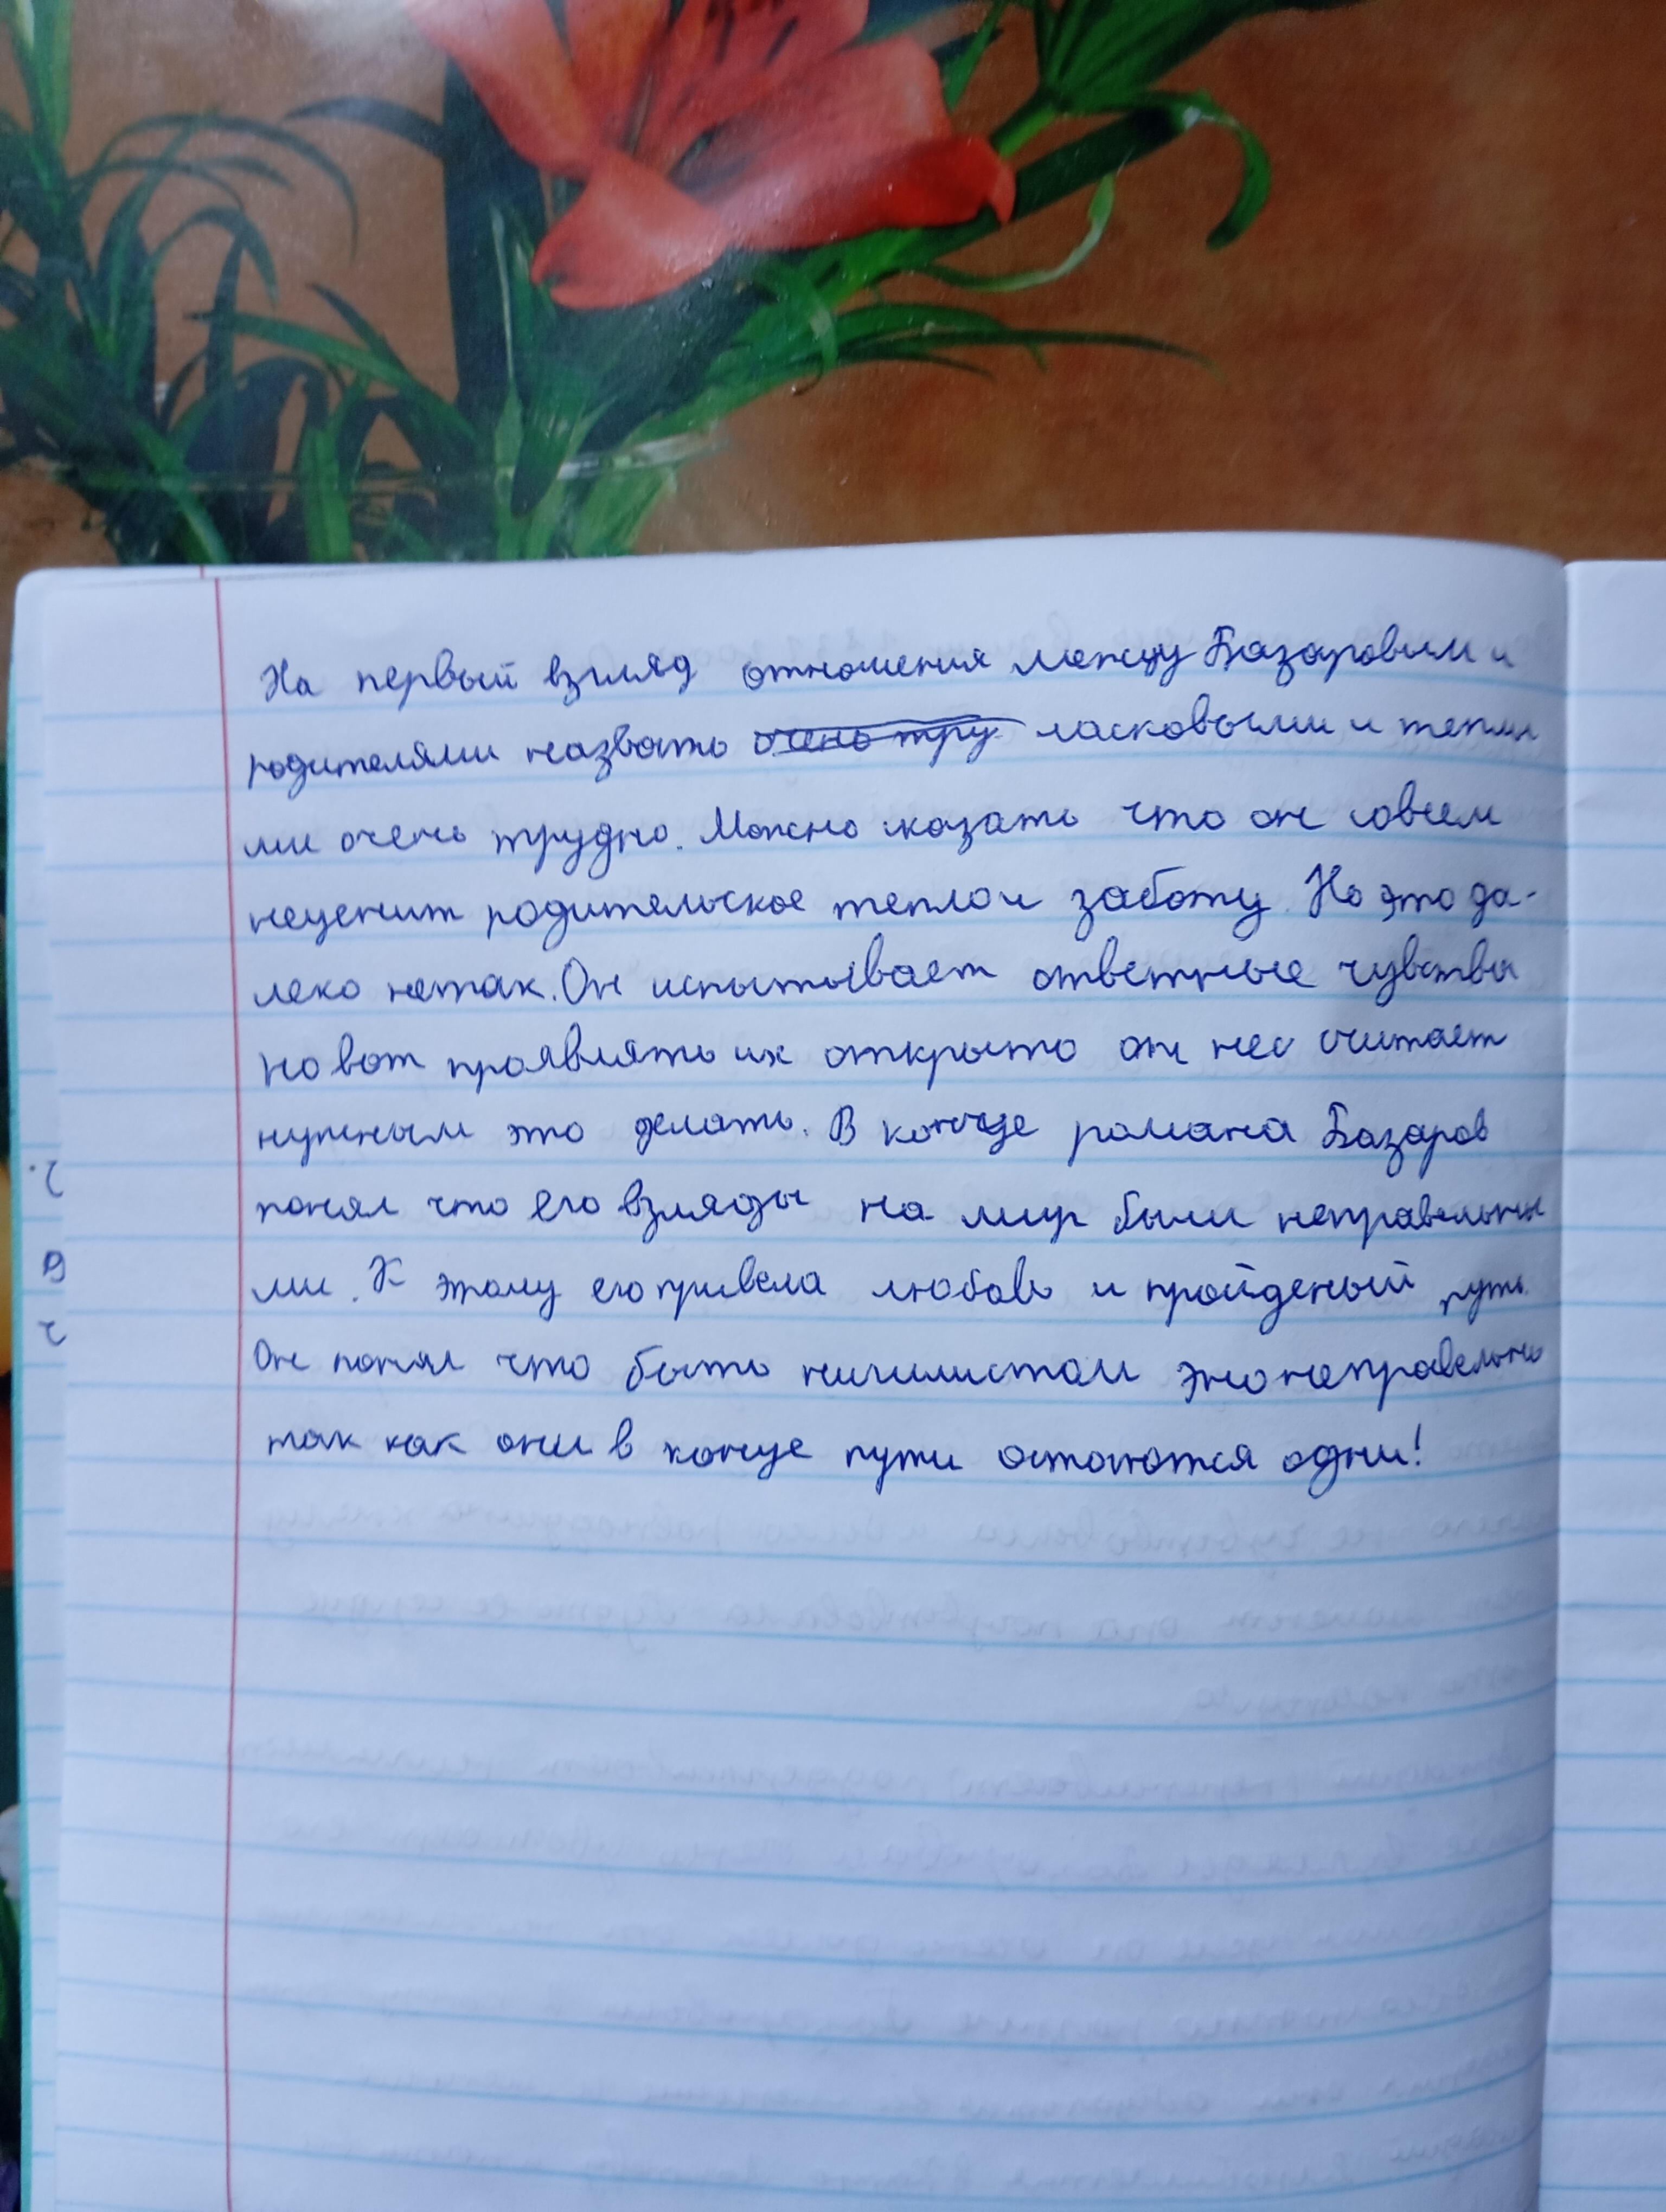 На первый взгляд отношения между Базаровым и
родителями назвать очень тру ласковыми и теплы
ми очень трудно. Можно сказать что он совсем
неценит родительское тепло и заботу. Но это да-
леко нетак. Он испытывает ответные чувства
но вот проявлять их открыто он не считает
нужным это делать. В конце романа Базаров
понял что его взгляды на мир были неправельны
ми. К этому его привела любовь и пройденый путь.
Он понял что быть нигилистом это неправельно
так как они в конце пути остаются одни!